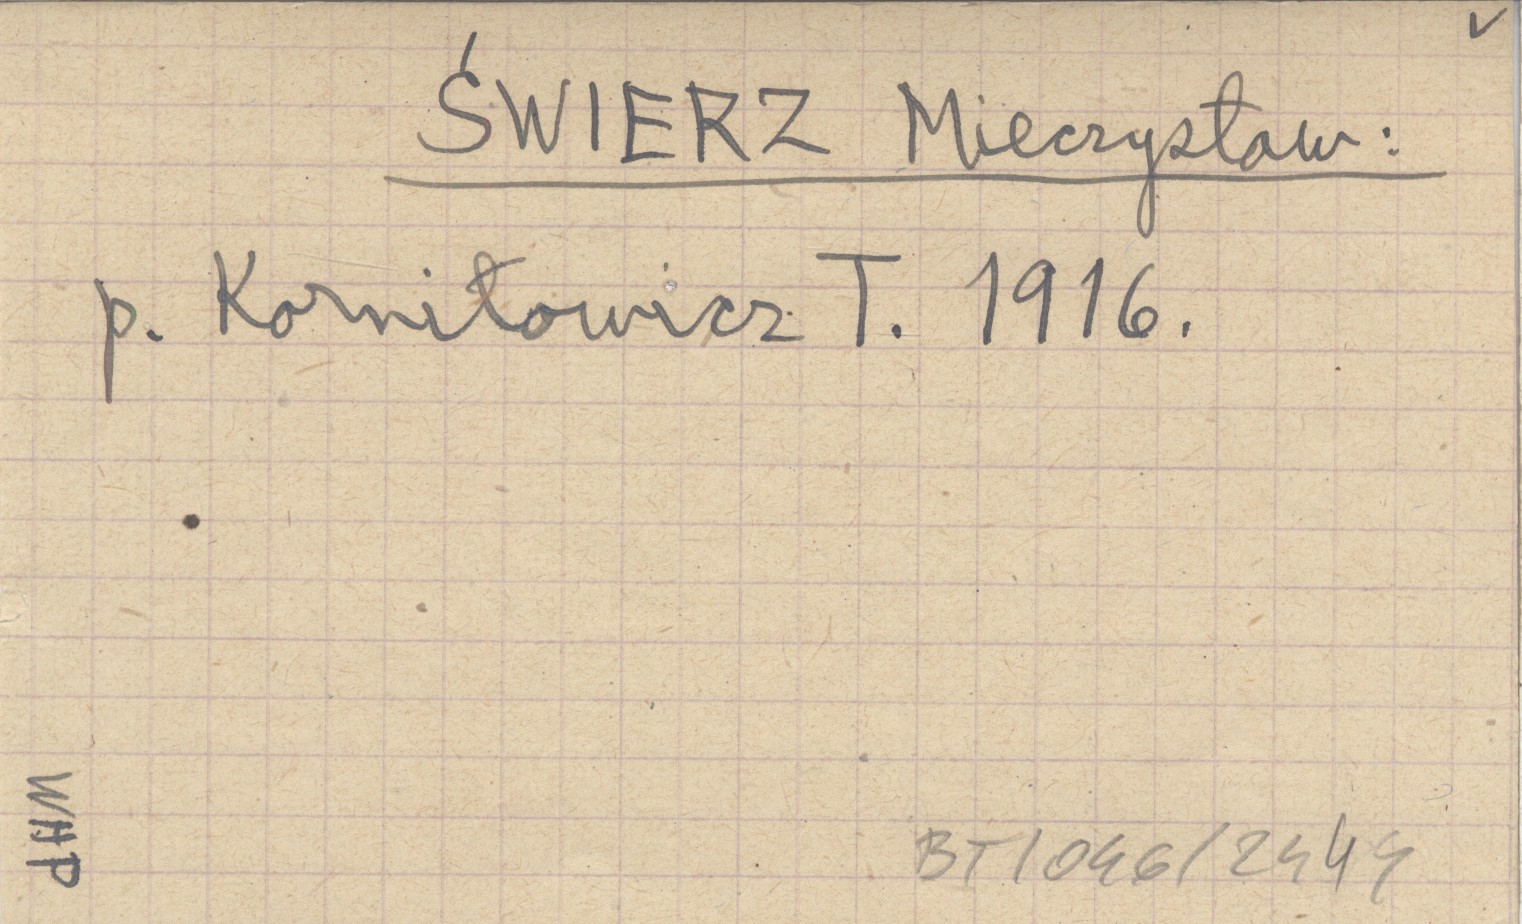 ✓
ŚWIERZ Mieczysław:
p. Korniłowicz T. 1916.
WHP
BT/046/2444